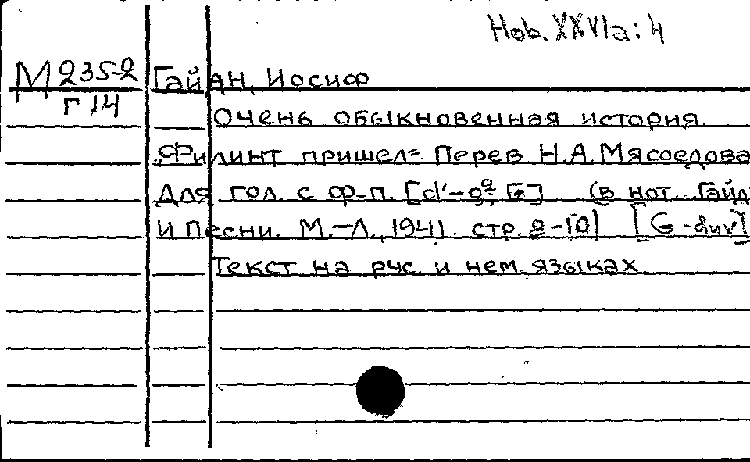 Hob. XXVIa: 4
М 235-2 Гайдн, Иосиф
Г 14
Очень обыкновенная история.
"Филинт пришел" Перев. Н.А. Мясоедова
Для гол. с ф-п. [d'-g², G] (в нот. Гайд
и Песни. М.-Л., 1941. стр. 8-10) [G-dur]
Текст на рус. и нем. языках.